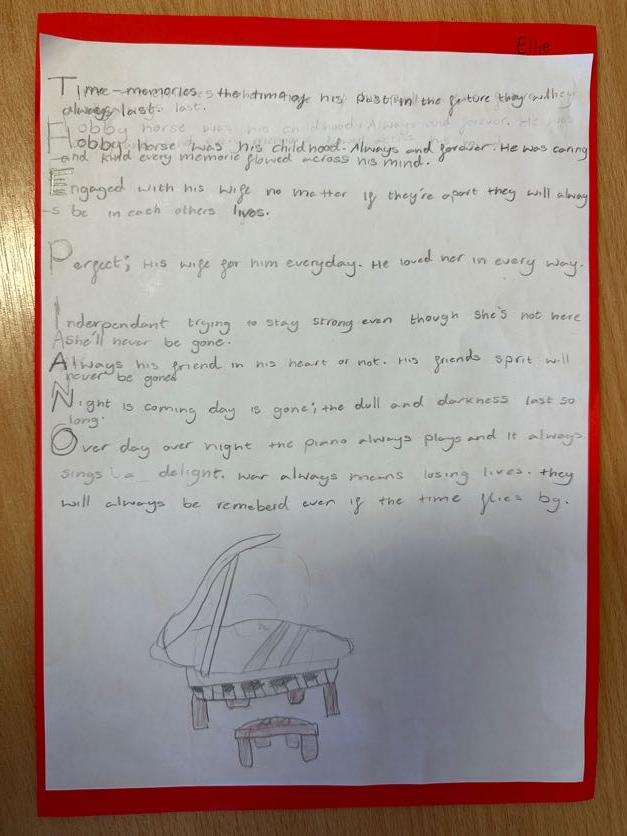 Ellie
Time - memories the time of his past in the future they will
always last.
Hobby horse was his childhood. Always and forever. He was caring
and kind every memorie flowed across his mind.
Engaged with his wife no matter if they're apart they will alway
-s be in each others lives.
Perfect; His wife for him everyday. He loved her in every way.
Inderpendant trying to stay strong even though she's not here
she'll never be gone.
Always his friend in his heart or not. His friends sprit will
never be gone.
Night is coming day is gone; the dull and darkness last so
long.
Over day over night the piano always plays and it always
sings a delight. war always means losing lives. they
will always be remeberd even if the time flies by.